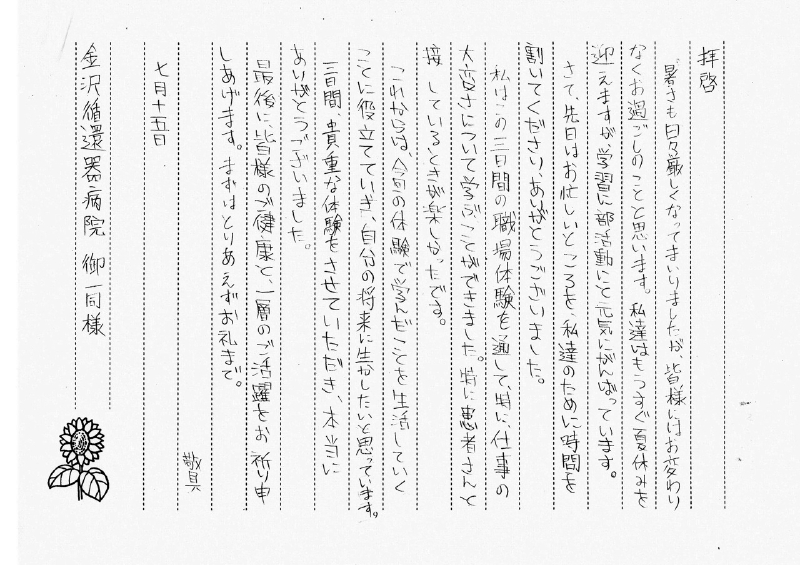 拝啓
暑さも日々厳しくなってまいりましたが、皆様にはお変わり
なくお過ごしのことと思います。私達はもうすぐ夏休みを
迎えますが学習に部活動にと元気にがんばっています。
さて、先日はお忙しいところを、私達のために時間を
割いてくださり、ありがとうございました。
私はこの三日間の職場体験を通して、特に、仕事の
大変さについて学ぶことができました。特に患者さんと
接しているときが楽しかったです。
これからは、今回の体験で学んだことを生活していく
ことに役立てていき、自分の将来に生かしたいと思っています。
三日間、貴重な体験をさせていただき、本当に
ありがとうございました。
最後に、皆様のご健康と、一層のご活躍をお祈り申
しあげます。まずはとりあえずお礼まで。
敬具
七月十五日
金沢循還器病院 御一同様